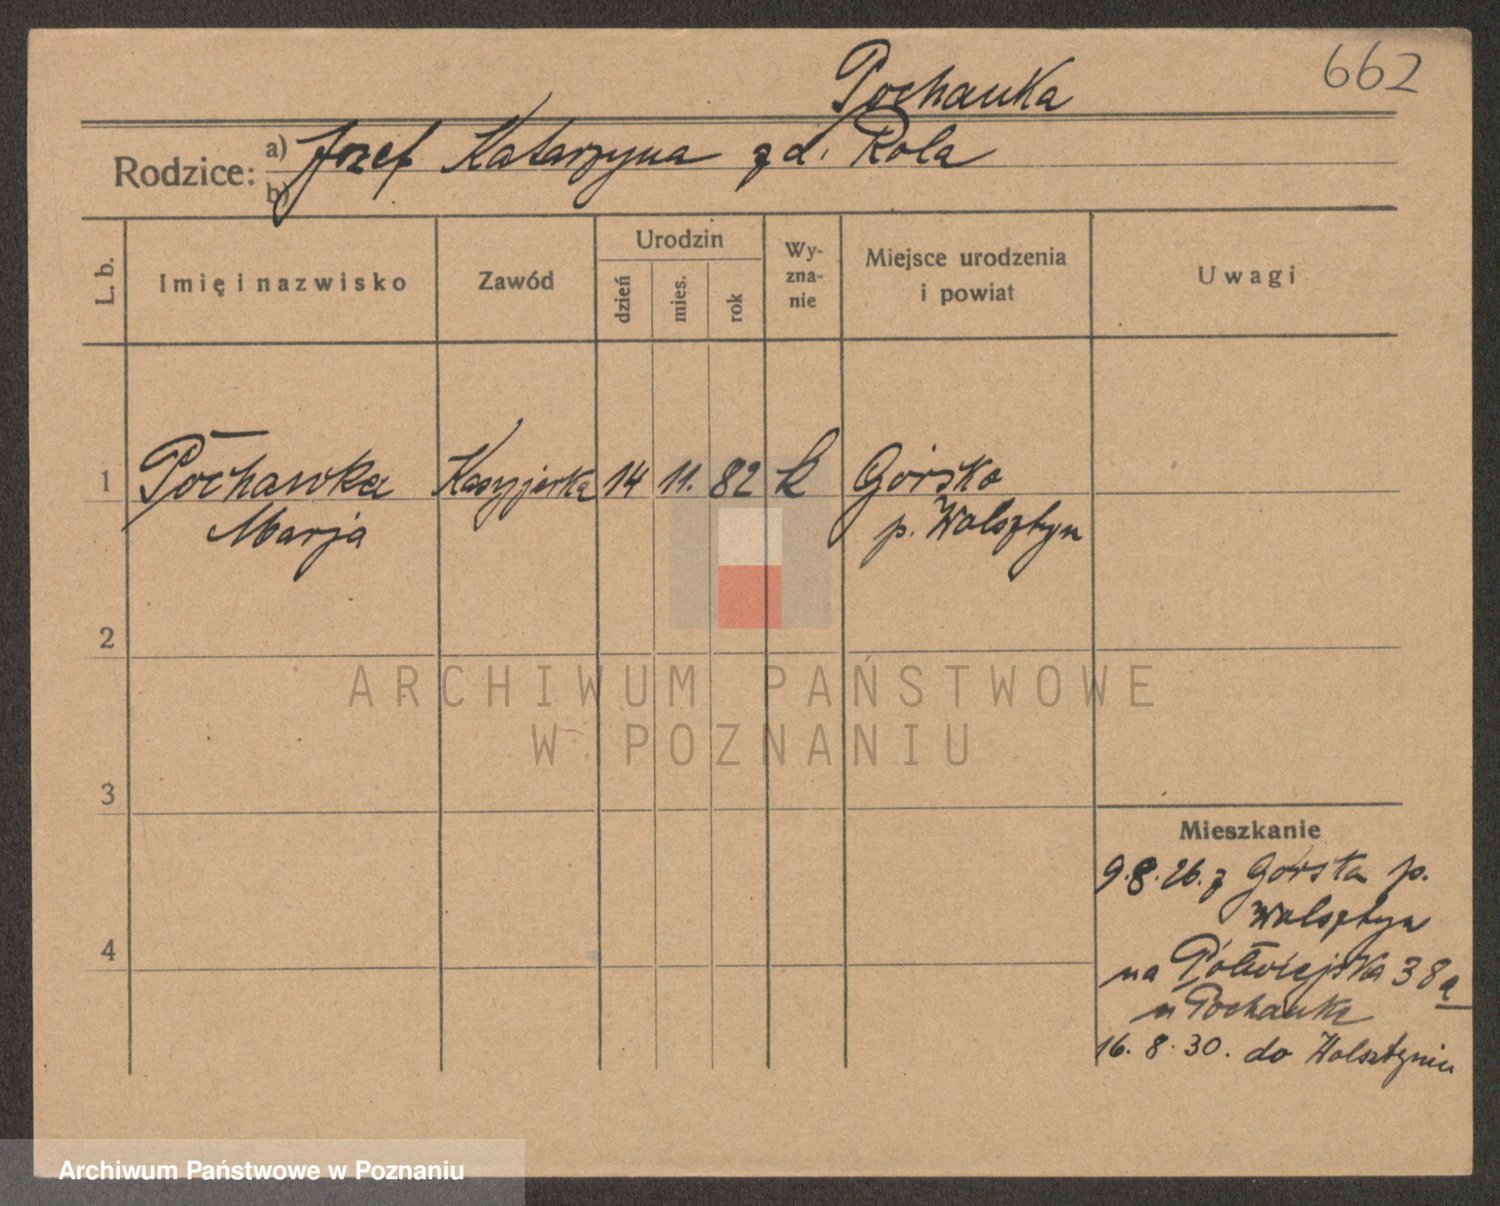 662
Pochanka
Rodzice: a) Józef Katarzyna zd. Rola
b)
L. b. Imię i nazwisko Zawód Urodzin dzień mies. rok Wy-zna-nie Miejsce urodzenia i powiat Uwagi
1 Pochanka Kasyjerka 14 11. 82 k Górsko
Marja p. Wolsztyn
2
ARCHIWUM PAŃSTWOWE
W POZNANIU
3
Mieszkanie
9.8.26. z Górska p.
Wolsztyn
4
na Półwiejska 38a
u Pochanka
16. 8. 30. do Wolsztynia
Archiwum Państwowe w Poznaniu